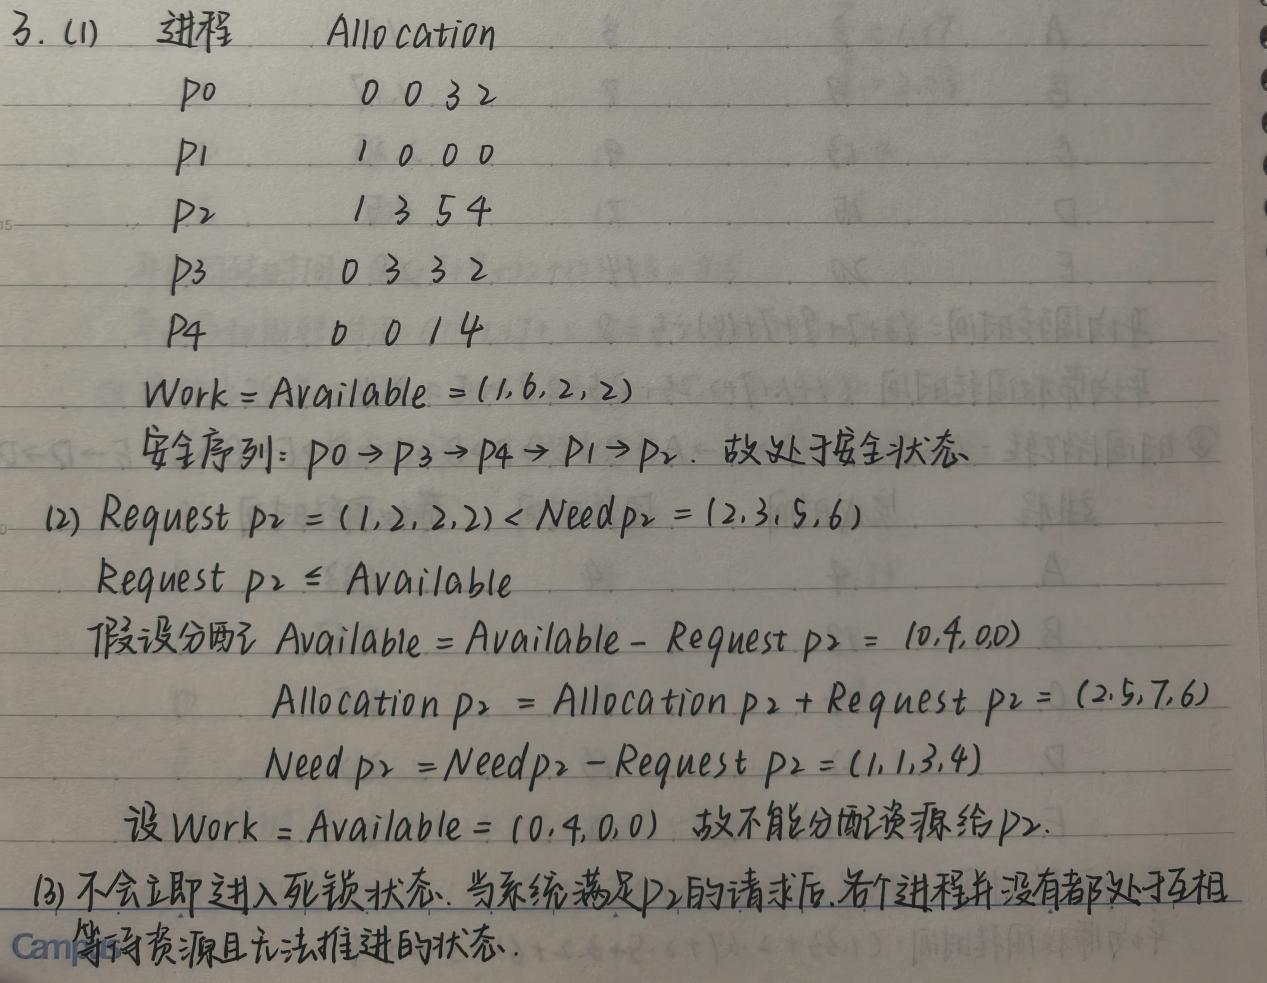 3. (1) 进程 Allocation
P0 0 0 3 2
P1 1 0 0 0
P2 1 3 5 4
P3 0 3 3 2
P4 0 0 1 4
Work = Available = (1,6,2,2)
安全序列: P0 → P3 → P4 → P1 → P2. 故处于安全状态.
(2) Request P2 = (1,2,2,2) < Need P2 = (2,3,5,6)
Request P2 ≤ Available
假设分配 Available = Available - Request P2 = (0,4,0,0)
Allocation P2 = Allocation P2 + Request P2 = (2,5,7,6)
Need P2 = Need P2 - Request P2 = (1,1,3,4)
设 Work = Available = (0,4,0,0) 故不能分配资源给P2.
(3) 不会立即进入死锁状态. 当系统满足P2的请求后,各个进程并没有都处于互相
等待资源且无法推进的状态.